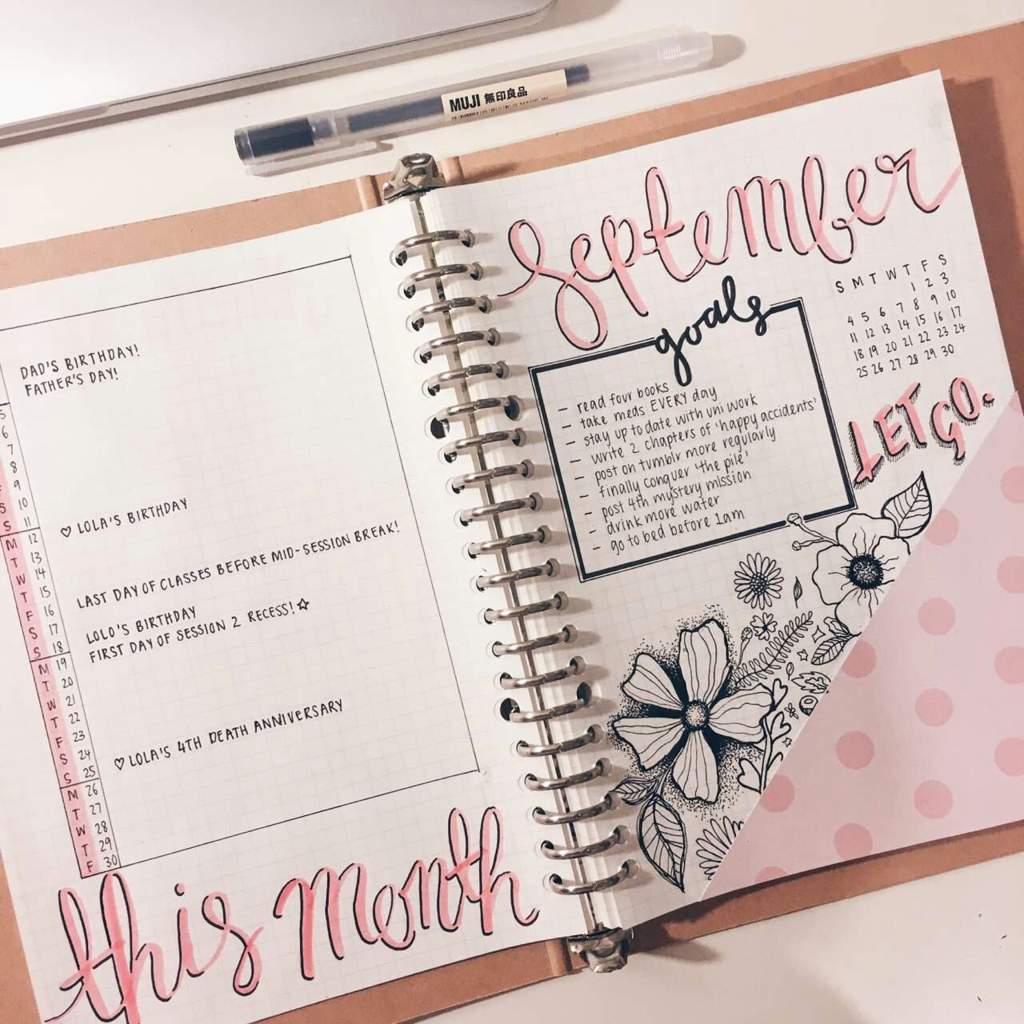 MUJI 無印良品
DAD'S BIRTHDAY!
FATHER'S DAY!
S
6
7
8
9
10
S 11
M 12
T 13
W 14
T 15
F 16
S 17
S 18
M 19
T 20
W 21
T 22
F 23
S 24
S 25
M 26
T 27
W 28
T 29
F 30
♡ LOLA'S BIRTHDAY
LAST DAY OF CLASSES BEFORE MID-SESSION BREAK!
LOLO'S BIRTHDAY
FIRST DAY OF SESSION 2 RECESS! ☆
♡ LOLA'S 4TH DEATH ANNIVERSARY
this month
September
goals
– read four books
– take meds EVERY day
– stay up to date with uni work
– write 2 chapters of 'happy accidents'
– post on tumblr more regularly
– finally conquer 'the pile'
– post 4th mystery mission
– drink more water
– go to bed before 1am
S M T W T F S
1 2 3
4 5 6 7 8 9 10
11 12 13 14 15 16 17
18 19 20 21 22 23 24
25 26 27 28 29 30
LET GO.